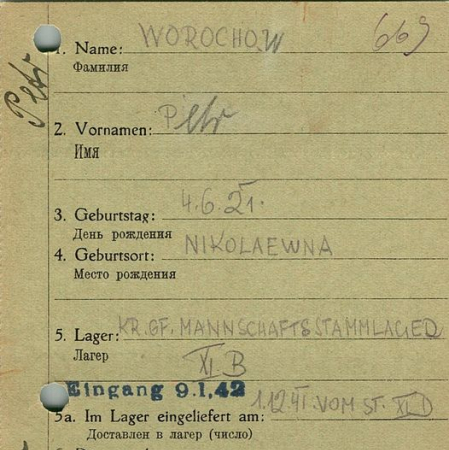 1. Name: WOROCHOW 669
Фамилия
Petr
2. Vornamen: Petr
Имя
3. Geburtstag: 4.6.21.
День рождения
4. Geburtsort: NIKOLAEWNA
Место рождения
5. Lager: KR.GF. MANNSCHAFTSSTAMMLAGER
Лагер
XI B
Eingang 9.1.42
5a. Im Lager eingeliefert am: 1.12.41. VOM ST. XI D
Доставлен в лагер (число)